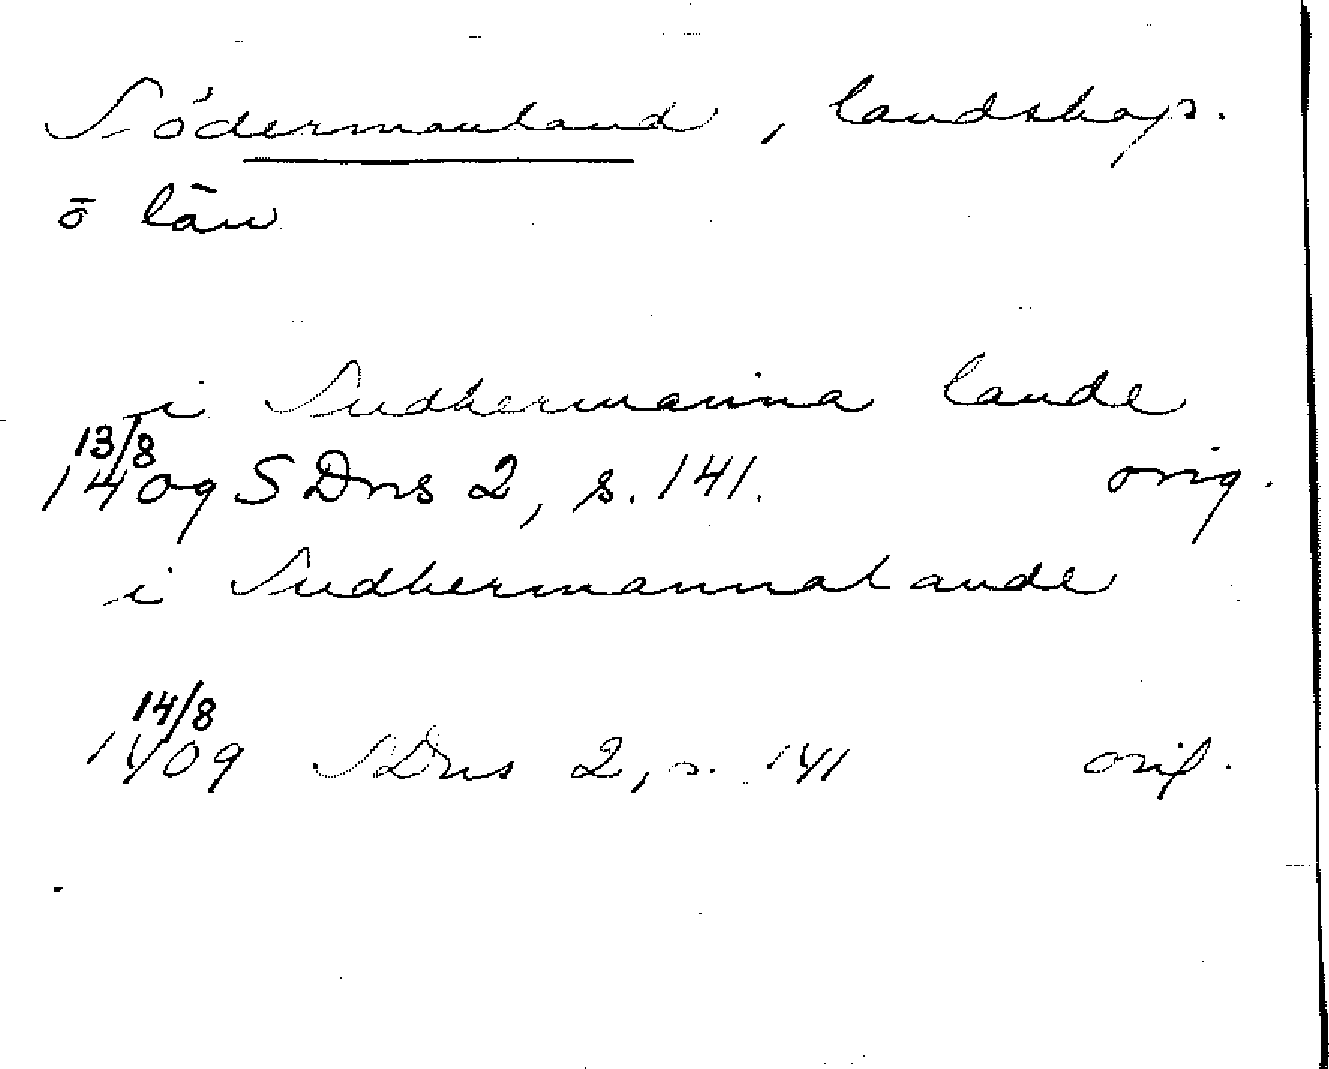 Södermanland, landskap.
ö län
i Sudhermanna lande
13/8
1409 SDns 2, s. 141. orig.
i Sudhermannalande
14/8
1409 SDns 2, s. 141 orig.